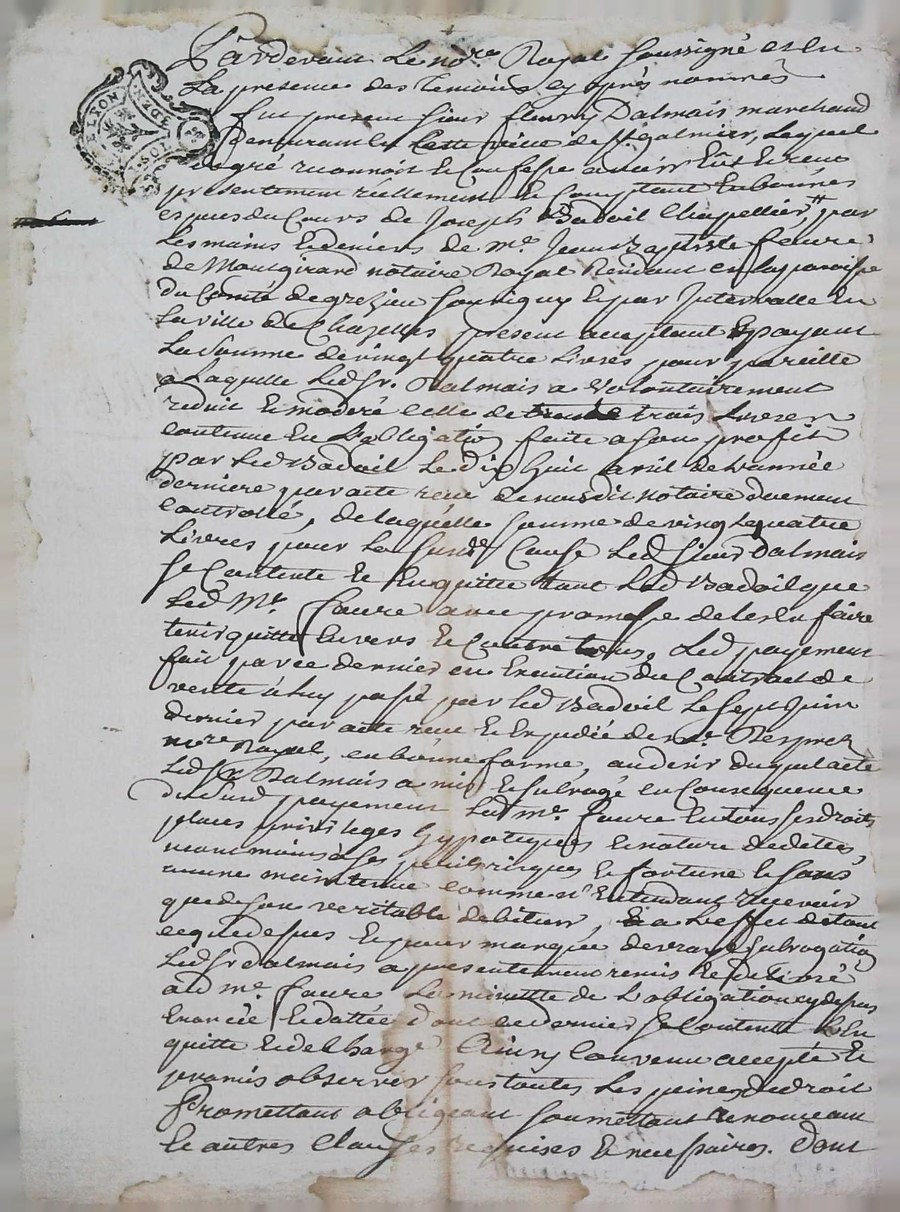 Pardevant Le no.re Royal Soussigné et en
La presence des Temoins cy après nommés
Fut present sieur fleury Dalmais marchand
Demeurant en Cette ville de St. galmier, Lequel
degré reconnoit et Confesse avoir Eü et receu
presentement réellement et Comptant En bonnes
especes du Cours de Joseph Badoil Chapellier, par
Les mains et deniers de me. Jean Baptiste faure
de Montgirard notaire Royal Residant en la paroisse
du Comté de grezieu Souvigny et par Intervalle En
La ville de Chazelles present acceptant et payant
La Somme de vingt quatre Livres pour pareille
a Laquelle Led. Sr. Dalmais a volontairement
reduit et moderé celle de trente trois Livres
contenue En L'obligation faite a son profit
par Led. Badoil Le dix huit avril de L'année
derniere par acte receu de nousdit notaire duement
controllé, de laquelle somme de vingt quatre
Livres pour La Susd. Cause Led. Sieur Dalmais
Se Contente Et En quitte tant Led. Badoil que
Led. Me. faure avec promesse de les En faire
tenir quitte Envers et Contre tous. Led. payement
fait par ce dernier en Execution du Contract de
vente à Luy passé par Led. Badoil Le Sept Juin
dernier par acte receu et Expedié de me. Desprez
no.re Royal, en bonne forme, au desir duquel acte
Led. Sr. Dalmais a mis et Subrogé en Consequence
du Susd. payement Led. me. faure En tous ses droits
places privileges hypoteques et nature de dette,
neantmoins à Ses perils risques et fortune et Sans
aucune maintenue comme n'Entendant recevoir
que de Son veritable debiteur, Et a L'effet de tout
ce que dessus Et pour marque de vraye Subrogation
Led. Sr. dalmais a presentement remis et delivré
aud. me. faure La minutte de L'obligation cy dessus
Enoncée et dattée dont ce dernier Se Contente et En
quitte Et decharge Ainsy Convenu accepté Et
promis observer Sous toutes Les peines de droit
Promettant obligeant Soumettant renonceant
Et autres Clauses requises Et necessaires. Dont
LYON